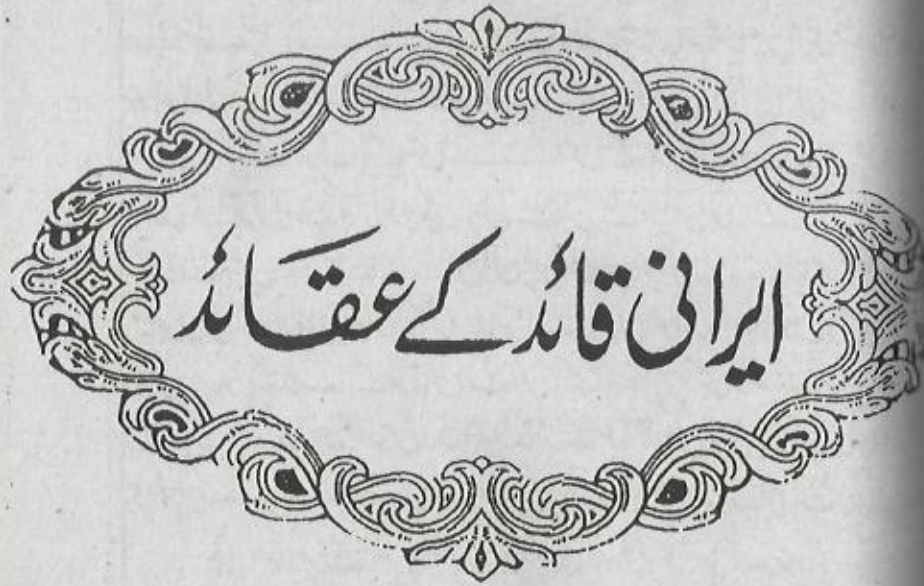 ایرانی قائد کے عقائد